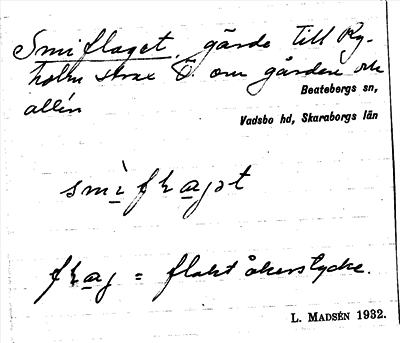 Smiflaget, gärde till Ry-
holm strax Ö. om gården och
allén
Beatebergs sn,
Vadsbo hd, Skaraborgs län
= flakt åkerstycke.
L. MADSÉN 1932.